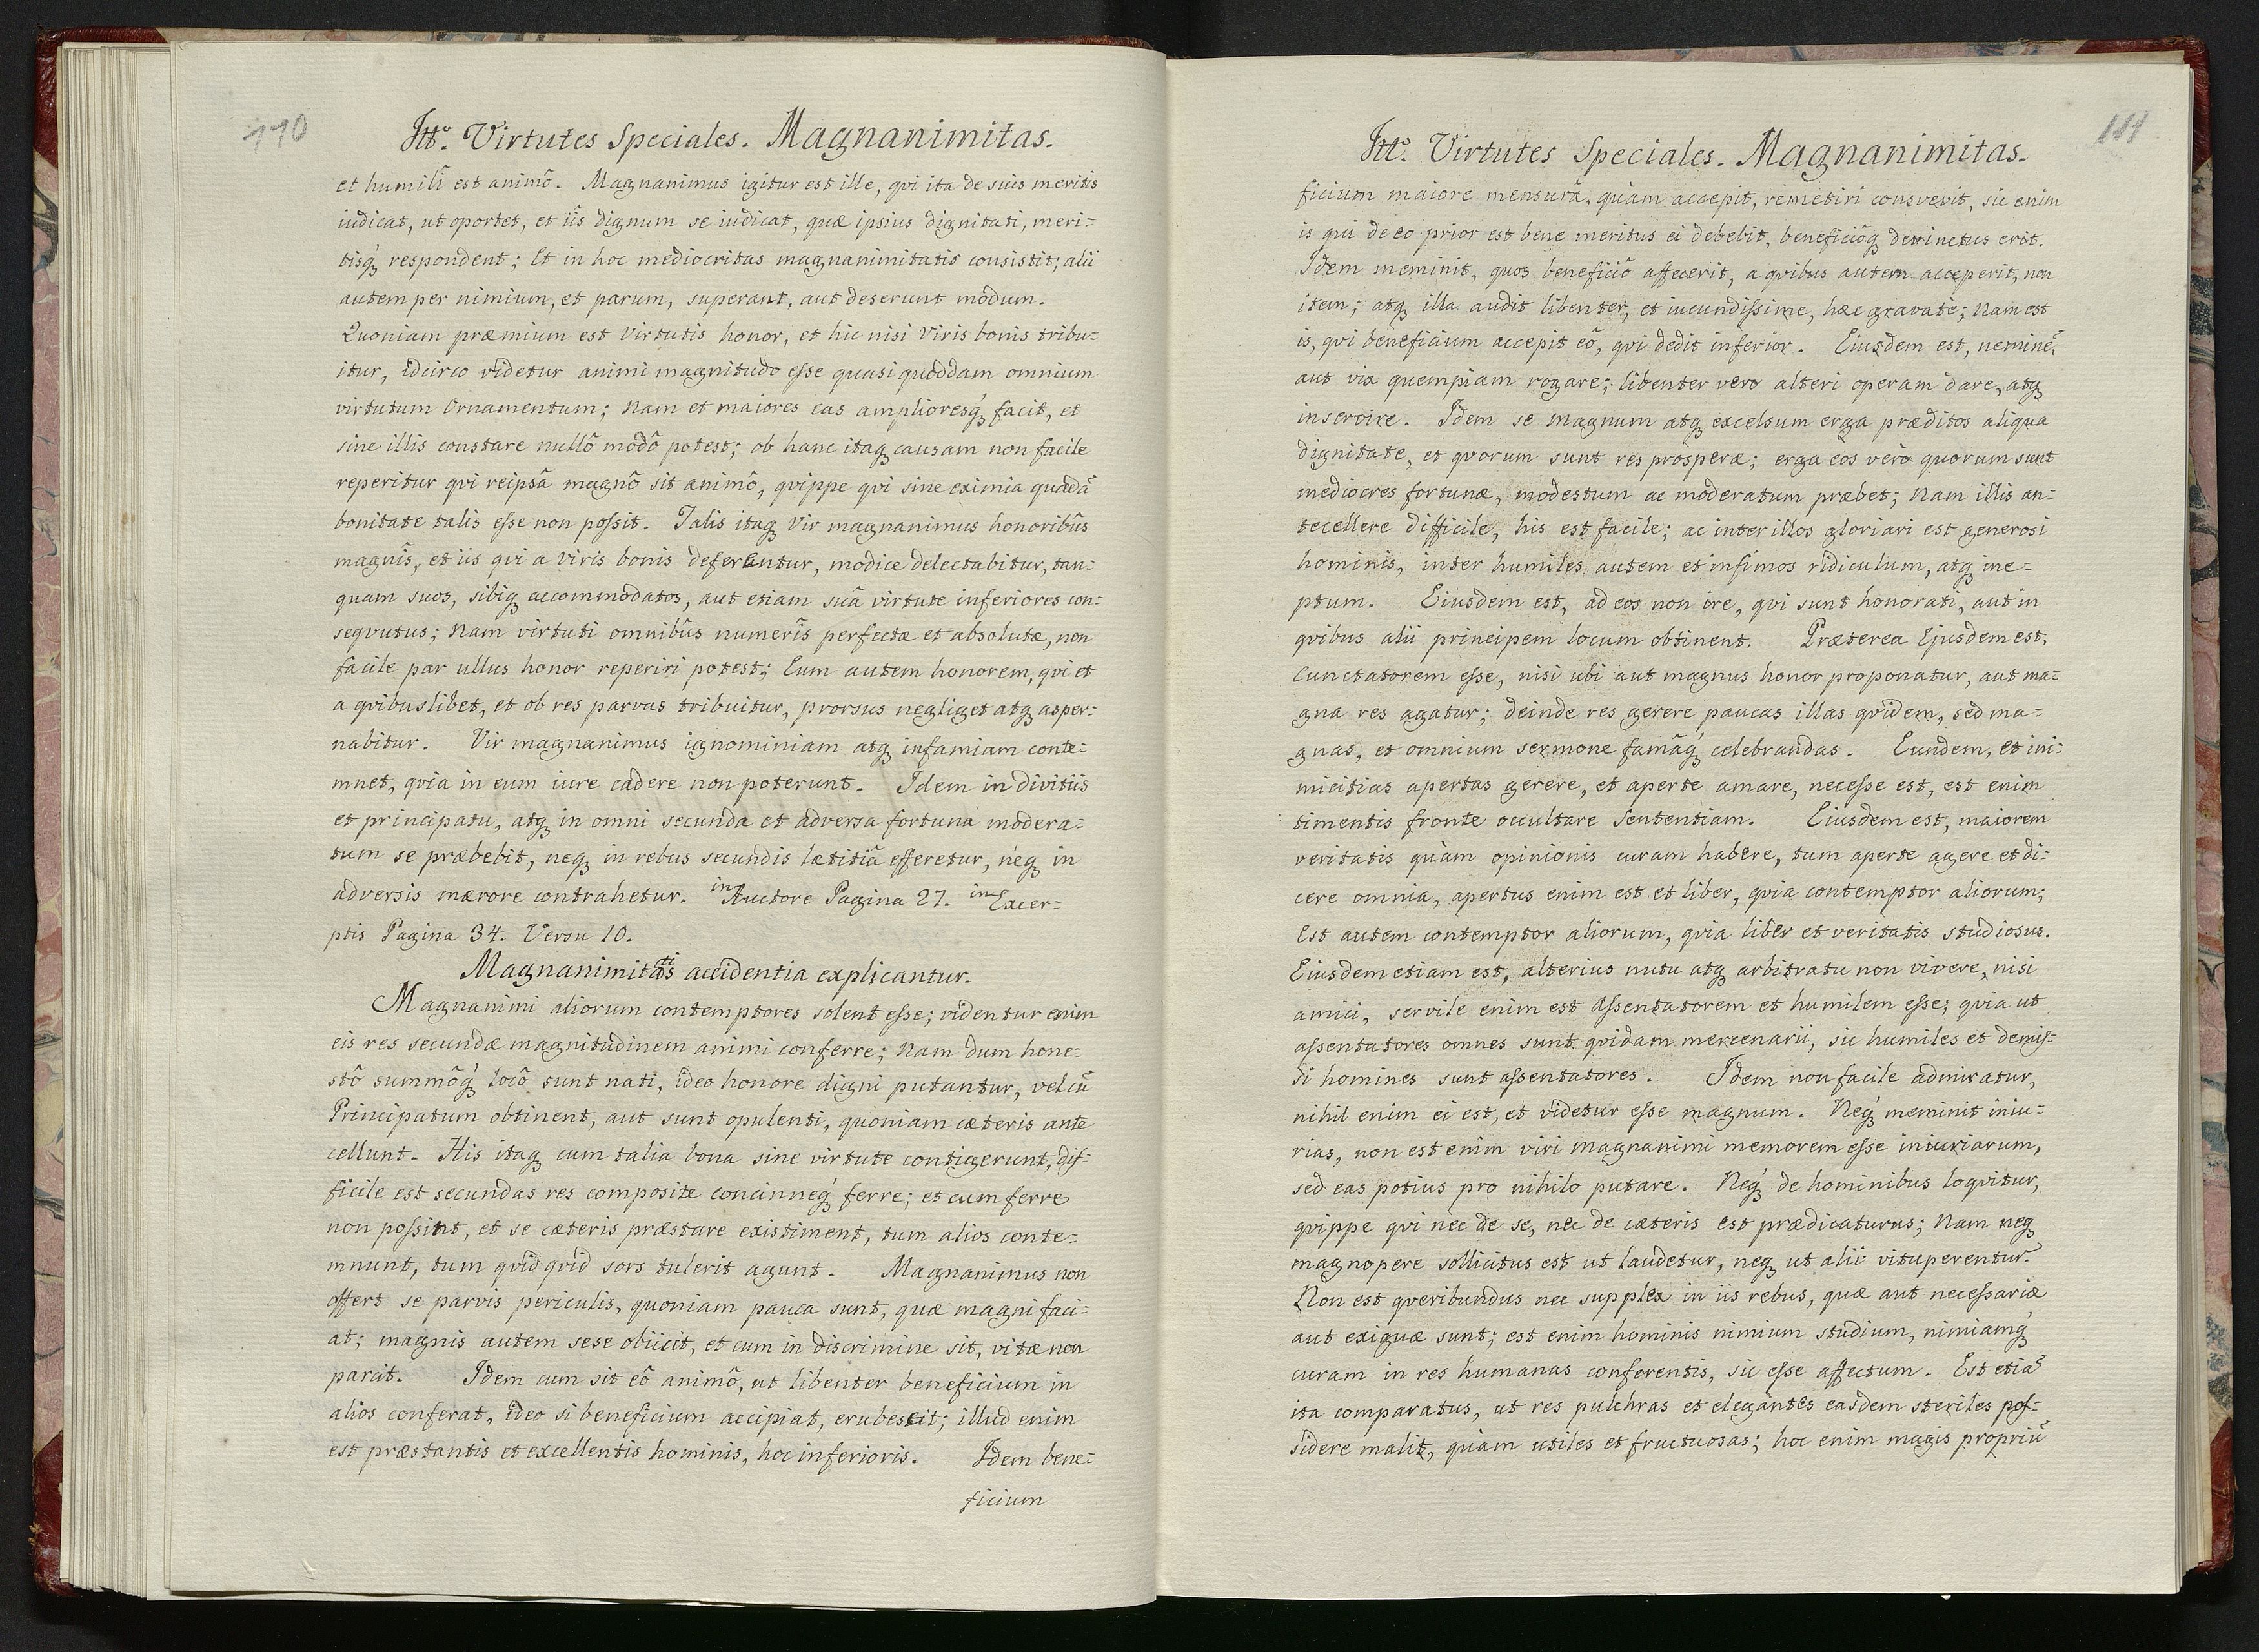 110
Itt.º Virtutes Speciales. Magnanimitas.
et humili est animô. Magnanimus igitur est ille, qvi ita de suis meritis
iudicat, ut oportet, et iîs dignum se iudicat, quæ ipsius dignitati, meri=
tisq́ꝫ respondent; Et in hoc mediocritas magnanimitatis consistit; alii
autem per nimium, et parum, superant, aut deserunt modum.
Quoniam præmium est virtutis honor, et hic nisi Viris bonis tribu=
itur, idcirco videtur animi magnitudo eſse quasi quoddam omnium
virtutum Ornamentum; Nam et maiores eas amplioresq́ꝫ facit, et
sine illis constare nullô modô potest; ob hanc itaqꝫ causam non facile
reperitur qvi reipsâ magnô sit animô, qvippe qvi sine eximia quadã
bonitate talis eſse non poſsit. Talis itaqꝫ Vir magnanimus honoribûs
magnîs, et iis qvi a Viris bonis deferentur, modice delectabitur, tan=
quam suos, sibiqꝫ accommodatos, aut etiam suâ virtute inferiores con=
seqvutus; Nam virtuti omnibûs numerîs perfectæ et absolutæ, non
facile par ullus honor reperiri potest; Eum autem honorem, qvi et
a qvibuslibet, et ob res parvas tribuitur, prorsus negliget atqꝫ asper=
nabitur. Vir magnanimus ignominiam atqꝫ infamiam conte=
mnet, qvia in eum iure cadere non poterunt. Idem in divitiis
et principatu, atqꝫ in omni secunda et adversa fortuna modera=
tum se præbebit, neqꝫ in rebus secundis lætitiâ efferetur, neqꝫ in
adversis mærore contrahetur. in Auctore Pagina 27. in Excer=
ptis Pagina 34. Versu 10.
Magnanimitatis accidentia explicantur.
Magnanimi aliorum contemptores solent eſse; videntur enim
eis res secundæ magnitudinem animi conferre; Nam dum hone=
stô summôq́ꝫ locô sunt nati, ideo honore digni putantur, vel cũ
Principatum obtinent, aut sunt opulenti, quoniam cæteris ante
cellunt. His itaqꝫ cum talia bona sine virtute contigerunt, dif=
ficile est secundas res composite concinneq́ꝫ ferre; et cum ferre
non poſsint, et se cæteris præstare existiment, tum alios conte=
mnunt, tum qvidqvid sors tulerit agunt. Magnanimus non
offert se parvis periculis, quoniam pauca sunt, quæ magni faci=
at; magnis autem sese obiicit, et cum in discrimine sit, vitæ non
parcit. Idem cum sit eô animô, ut libenter beneficium in
alios conferat, ideo si beneficium accipiat, erubescit; illud enim
est præstantis et excellentis hominis, hoc inferioris. Idem bene=
ficium
111
Itt.º Virtutes Speciales. Magnanimitas.
ficium maiore mensurâ, quàm accepit, remetiri consvevit, sic enim
is qui de eo prior est bene meritus ei debebit, beneficiôqꝫ devinctus erit.
Idem meminit, quos beneficiô affecerit, a qvibus autem acceperit, non
item; atqꝫ illa audit libenter, et iucundiſsime, hæc gravatè; Nam est
is, qvi beneficium accepit eô, qvi dedit inferior. Eiusdem est, neminẽ,
aut vix quempiam rogare; libenter vero alteri operam dare, atqꝫ
inservire. Idem se magnum atqꝫ excelsum erga præditos aliqua
dignitate, et qvorum sunt res prosperæ; erga eos vèro quorum sunt
mediocres fortunæ, modestum ac moderatum præbet; Nam illis an=
tecellere difficile, his est facile; ac inter illos gloriari est generosi
hominis, inter humiles autem et infimos ridiculum, atqꝫ ine=
ptum. Eiusdem est, ad eos non ire, qvi sunt honorati, aut in
qvibus alii principem locum obtinent. Præterea Ejusdem est,
Cunctatorem eſse, nisi ubi aut magnus honor proponatur, aut ma=
gna res agatur; deinde res gerere paucas illas qvidem, sed ma=
gnas, et omnium sermone famâq́ꝫ celebrandas. Eundem, et ini=
micitias apertas gerere, et aperte amare, neceſse est, est enim
timentis fronte occultare Sententiam. Eiusdem est, maiorem
veritatis quàm opinionis curam habere, tum aperte agere et di=
cere omnia, apertus enim est et liber, qvia contemptor aliorum;
Est autem contemptor aliorum, qvia liber et veritatis studiosus.
Eiusdem etiam est, alterius nutu atqꝫ arbitratu non vivere, nisi
amici, servile enim est aſsentatorem et humilem eſse; qvia ut
aſsentatores omnes sunt qvidam mercenarii, sic humiles et demiſ=
si homines sunt aſsentatores. Idem non facile admiratur,
nihil enim ei est, et videtur eſse magnum. Neq́ꝫ meminit iniu=
rias, non est enim viri magnanimi memorem eſse iniuriarum,
sed eas potius pro nihilo putare. Neq́ꝫ de hominibus loqvitur,
qvippe qvi nec de se, nec de cæteris est prædicaturus; Nam neqꝫ
magnopere sollicitus est ut laudetur, neqꝫ ut alii vituperentur.
Non est qveribundus nec supplex in iis rebus, quæ aut neceſsariæ
aut exiguæ sunt; est enim hominis nimium studium, nimiamq́ꝫ
curam in res humanas conferentis, sic eſse affectum. Est etiã
ita comparatus, ut res pulchras et elegantes easdem steriles poſ=
sidere malit, quàm utiles et fructuosas; hoc enim magis propriũ